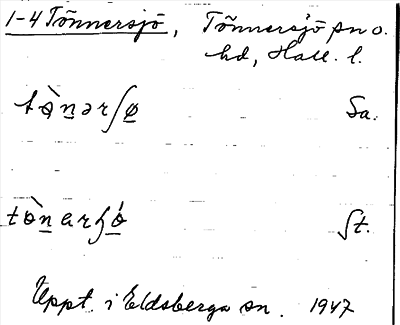 1-4 Tönnersjö, Tönnersjö sn o.
hd, Hall. l.
tø̀nərʃø Sa.
tɵ̀narɧɵ́ St.
Uppt. i Eldsberga sn. 1947